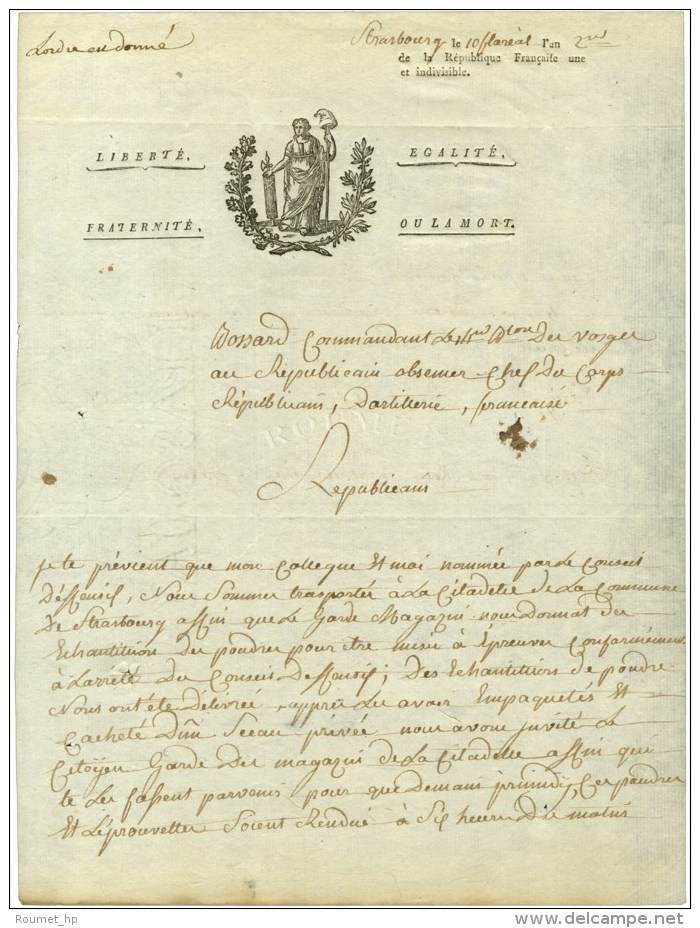 L'ordre est donné
Strasbourg le 10 floréal l'an 2me
de la République Française une
et indivisible.
LIBERTÉ.
EGALITÉ.
FRATERNITÉ.
OU LA MORT.
Bossard Commandant Le 4me Bton Des Vosges
au Républicain Chef Du Corps
Républicain, Dartillerie, francaise
Républicain
je te prévient que mon Collegue Et moi nommée par Le Conseil
Nous Sommes trasportés à La Citadelle De La Commune
De Strasbourg affin que Le Garde Magazin nous Donnat des
Echantition De poudres pour être misse à Epreuves Conformément
à Larreté Du Conseil ; Des Echantitions De poudre
Nous ont été Délivrée, apprés Les avoir Empaquetés Et
Cacheté D'un Sceau privée nous avons jnvité Le
Citoÿen Garde Des magazins De La Citadelle affin que
te Les fassent parvenir pour que demain primidy, Ces poudres
Et L'éprouvettes Soient Rendue à Six heures De matins
Roumet_hp
delcampe.net